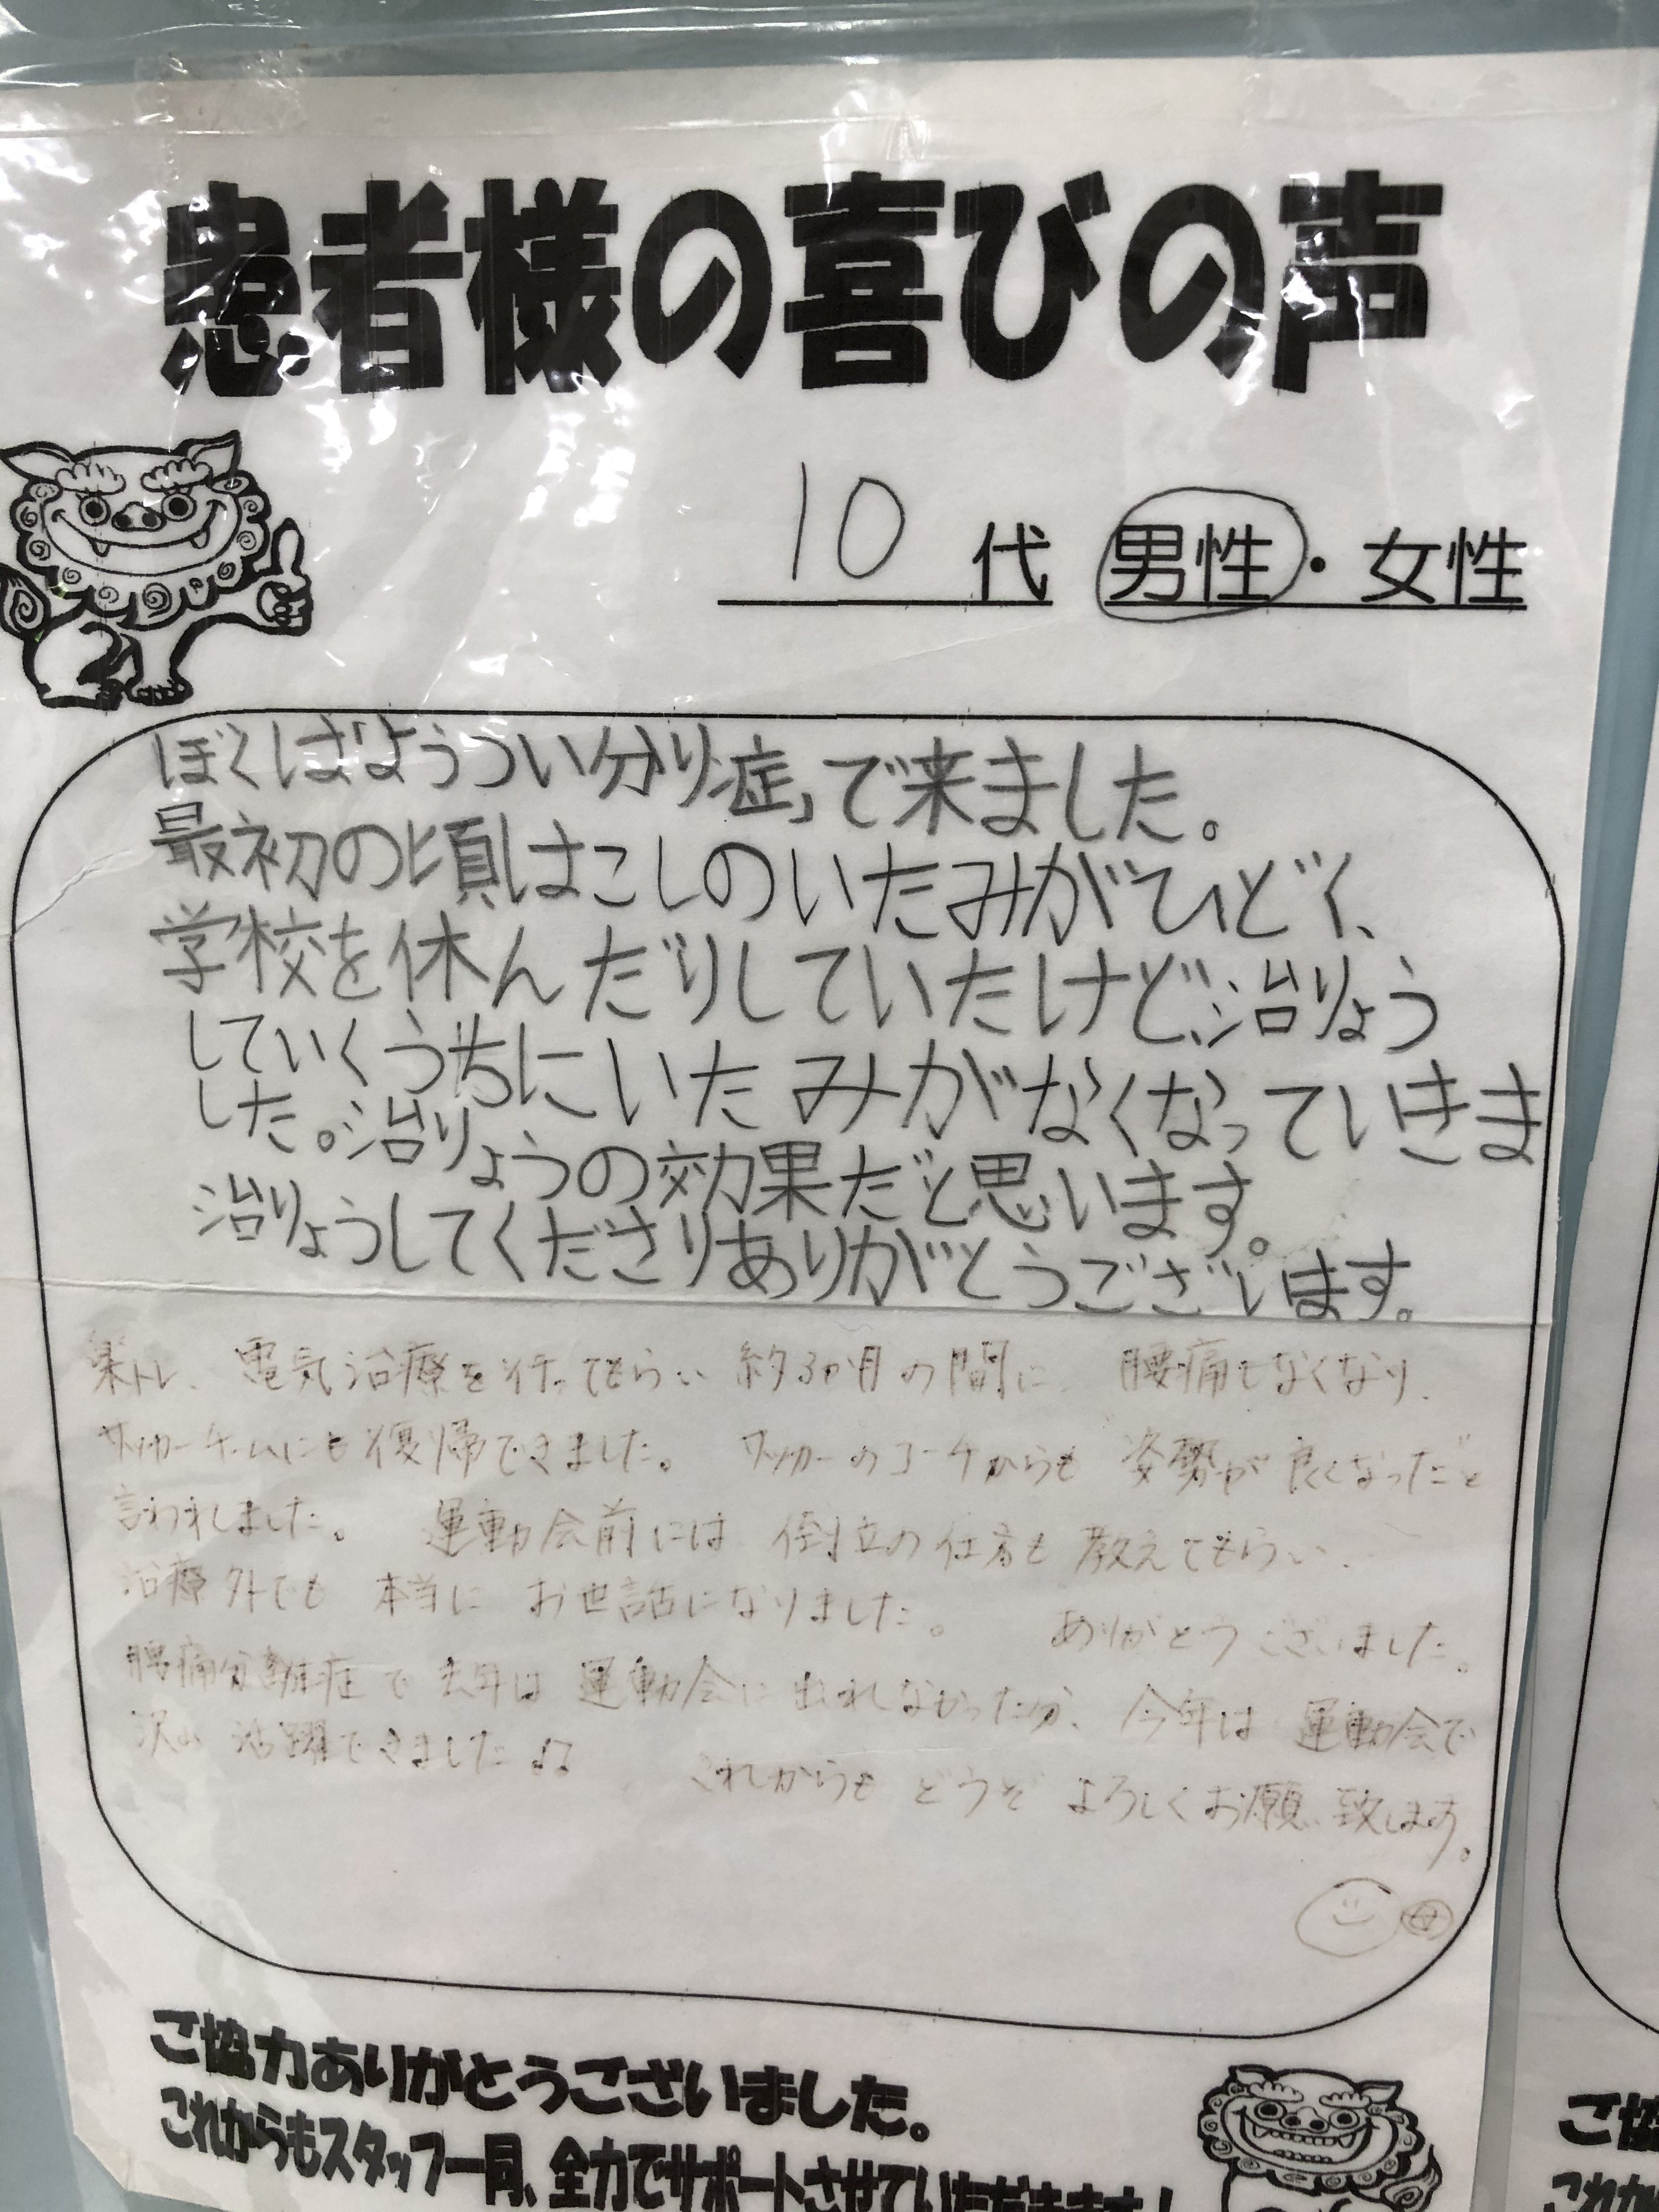 患者様の喜びの声
10代 男性・女性
ぼくは「ようつい分り症」で来ました。
最初の頃はこしのいたみがひどく、
学校を休んだりしていたけど、治りょう
していくうちにいたみがなくなっていきま
した。治りょうの効果だと思います。
治りょうしてくださりありがとうございます。
楽トレ、電気治療を行ってもらい約3ヶ月の間に、腰痛もなくなり、
サッカーチームにも復帰できました。サッカーのコーチからも姿勢が良くなったと
言われました。運動会前には倒立の仕方も教えてもらい、
治療外でも本当にお世話になりました。ありがとうございました。
腰痛分離症で去年は運動会に出れなかった分、今年は運動会で
沢山活躍できました♫これからもどうぞよろしくお願い致します。
母
ご協力ありがとうございました。
これからもスタッフ一同、全力でサポートさせていただきます！
ご協
これか